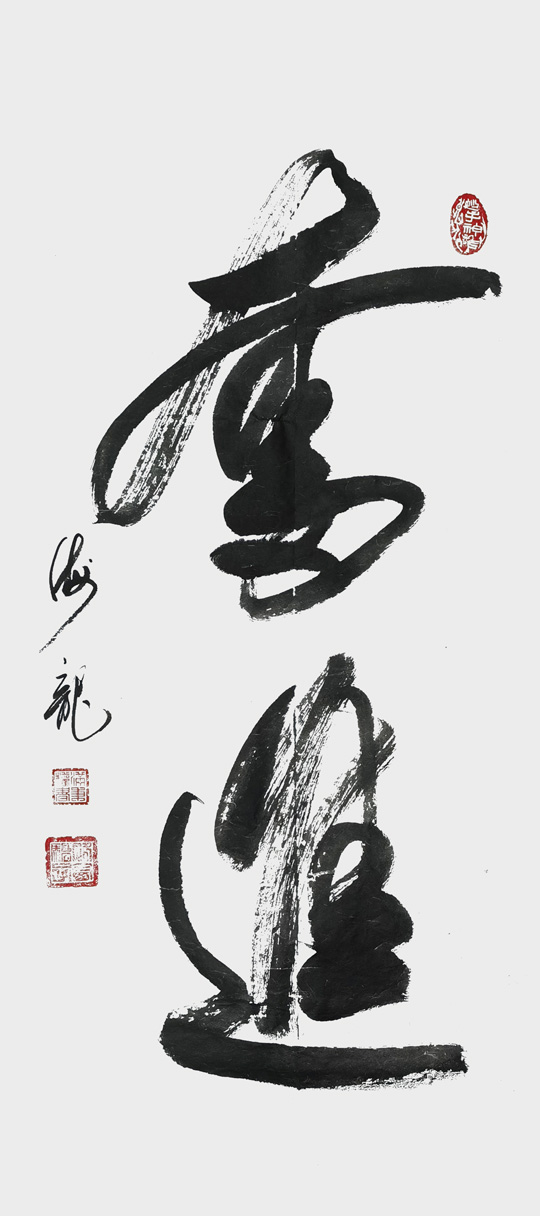 奮進
海龍